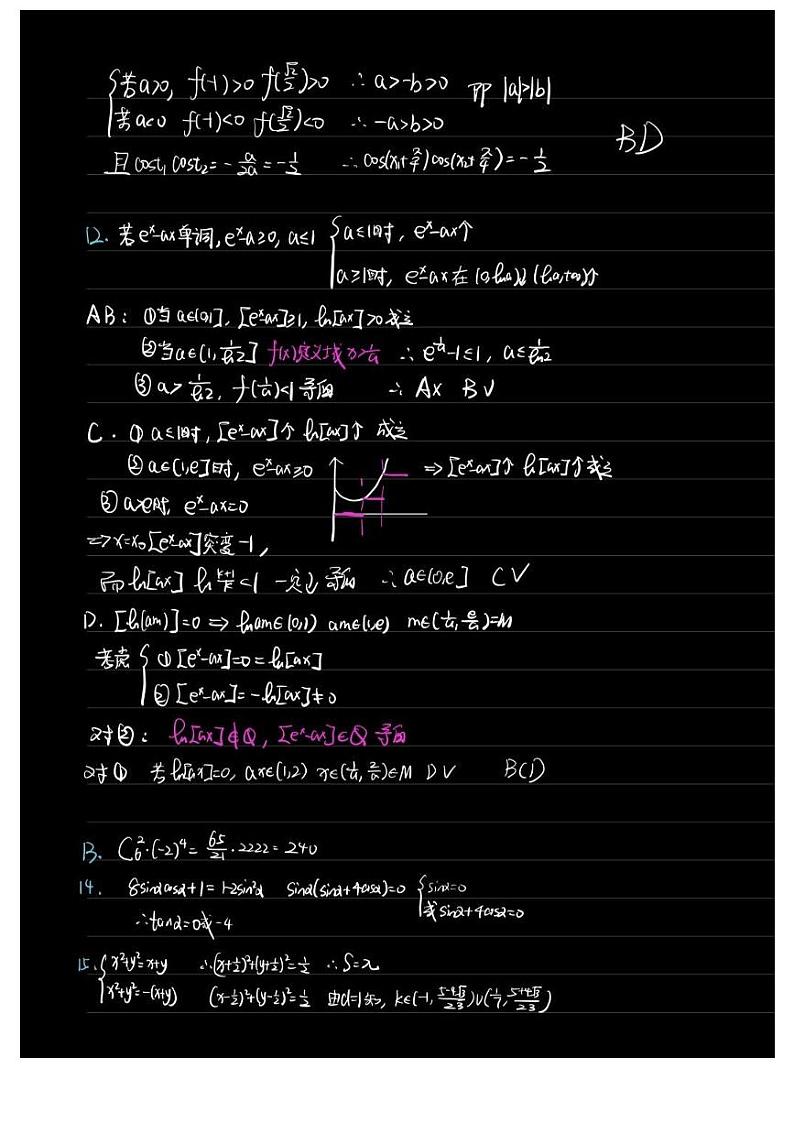 {若a>0, f(-1)>0 f(√2/2)>0 ∴a>-b>0 即 |a|>|b|
若a<0 f(-1)<0 f(√2/2)<0 ∴-a>b>0
BD
且cost₁cost₂=-a/2a=-1/2 ∴cos(x₁+π/4)cos(x₂+π/4)=-1/2
12. 若eˣ-ax单调, eˣ-a≥0, a≤1 {a≤1时, eˣ-ax↑
a≥1时, eˣ-ax在(0,lna)↓(lna,+∞)↑
AB: ①当a∈(0,1], [eˣ-ax]≥1, ln[ax]>0成立
②当a∈(1,1/ln2] f(x)定义域x>1/a ∴e^(1/a)-1≤1, a≤1/ln2
③a>1/ln2, f(1/a)<1矛盾 ∴A× B√
C. ①a≤1时, [eˣ-ax]↑ ln[ax]↑ 成立
②a∈(1,e]时, eˣ-ax≥0 ⇒[eˣ-ax]↑ ln[ax]↑成立
③a>e时, eˣ-ax=0
⇒x=x₀[eˣ-ax]突变-1,
而ln[ax] ln (k+1)/k<1 一定↓ 矛盾 ∴a∈(0,e] C√
D. [ln(am)]=0 ⇒ lnam∈(0,1) am∈(1,e) m∈(1/a, e/a)=M
考虑{①[eˣ-ax]=0=ln[ax]
②[eˣ-ax]=-ln[ax]≠0
对②: ln[ax]∉Q, [eˣ-ax]∈Q 矛盾
对① 若ln[ax]=0, ax∈(1,2) x∈(1/a, 2/a)∈M D√ BCD
13. C₆²·(-2)⁴=65/21·2222=240
14. 8sinαcosα+1=1-2sin²α sinα(sinα+4cosα)=0 {sinα=0
或sinα+4cosα=0
∴tanα=0或-4
15. {x²+y²=x+y ∴(x+1/2)²+(y+1/2)²=1/2 ∴S=π
x²+y²=-(x+y) (x-1/2)²+(y-1/2)²=1/2 由d=1知, k∈(-1, (5-4√3)/23)∪(1/7, (5+4√3)/23)